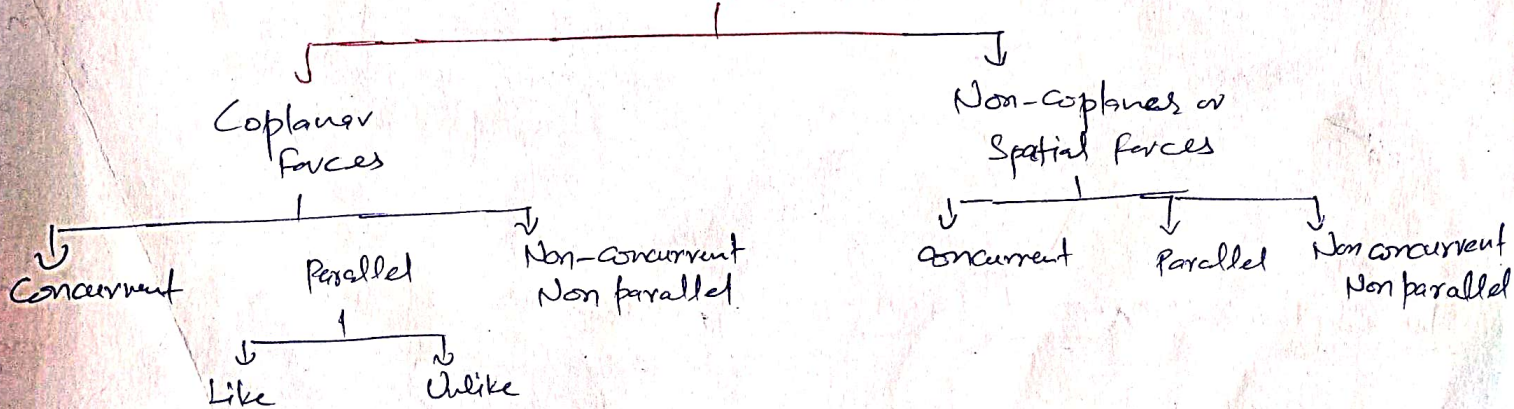 Coplaner
forces
Non-coplaner or
Spatial forces
Concurrent
Parallel
Non-concurrent
Non parallel
Concurrent
Parallel
Non concurrent
Non parallel
Like
Unlike